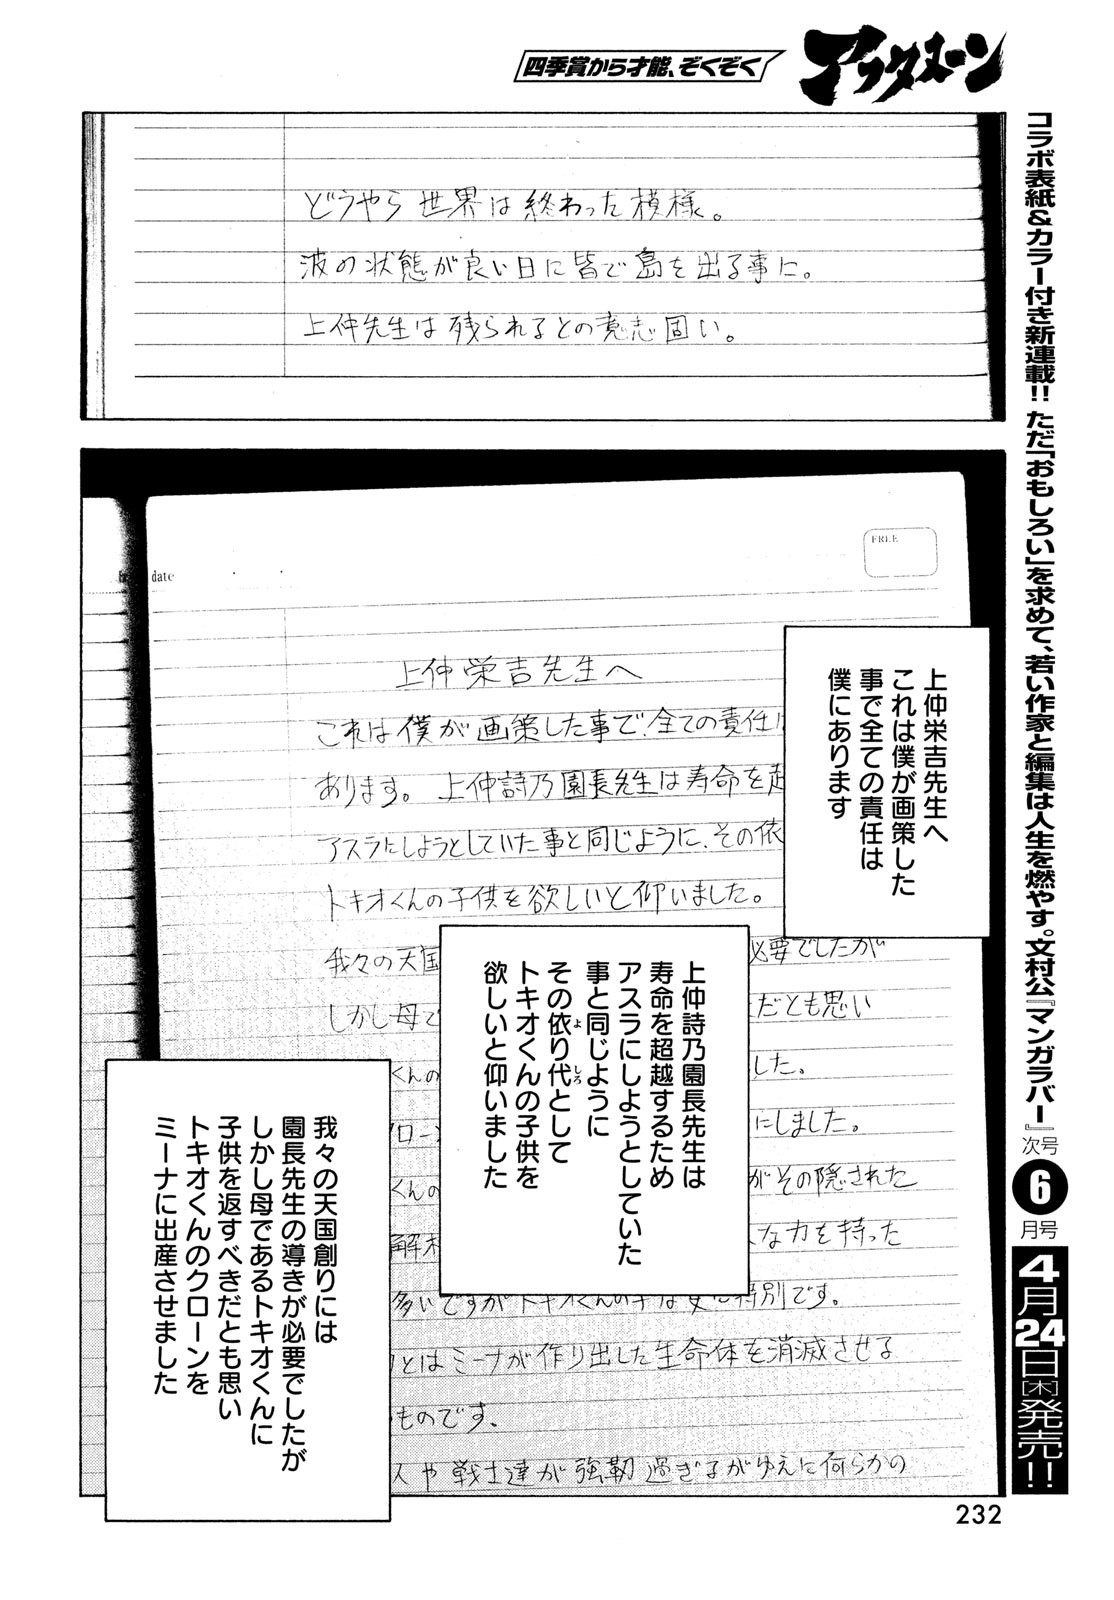 四季賞から才能、ぞくぞく
アフタヌーン
コラボ表紙&カラー付き新連載!! ただ「おもしろい」を求めて、若い作家と編集は人生を燃やす。文村公『マンガラバー』次号6月号4月24日[木]発売!!
どうやら世界は終わった模様。
波の状態が良い日に皆で島を出る事に。
上仲先生は残られるとの意志固い。
date
FREE
上仲栄吉先生へ
これは僕が画策した事で全ての責任は
あります。上仲詩乃園長先生は寿命を超
アスラにしようとしていた事と同じように、その依
トキオくんの子供を欲しいと仰いました。
我々の天国
必要でしたが
しかし母で
だとも思い
くんの
した。
ローン
にしました。
くんの
がその隠された
解
な力を持った
多いですがトキオくんの
特別です。
とはミーナが作り出した生命体を消滅させる
ものです。
スや戦士達が強靭過ぎるがゆえに何らかの
上仲栄吉先生へ
これは僕が画策した
事で全ての責任は
僕にあります
上仲詩乃園長先生は
寿命を超越するため
アスラにしようとしていた
事と同じように
その依り代として
トキオくんの子供を
欲しいと仰いました
我々の天国創りには
園長先生の導きが必要でしたが
しかし母であるトキオくんに
子供を返すべきだとも思い
トキオくんのクローンを
ミーナに出産させました
232